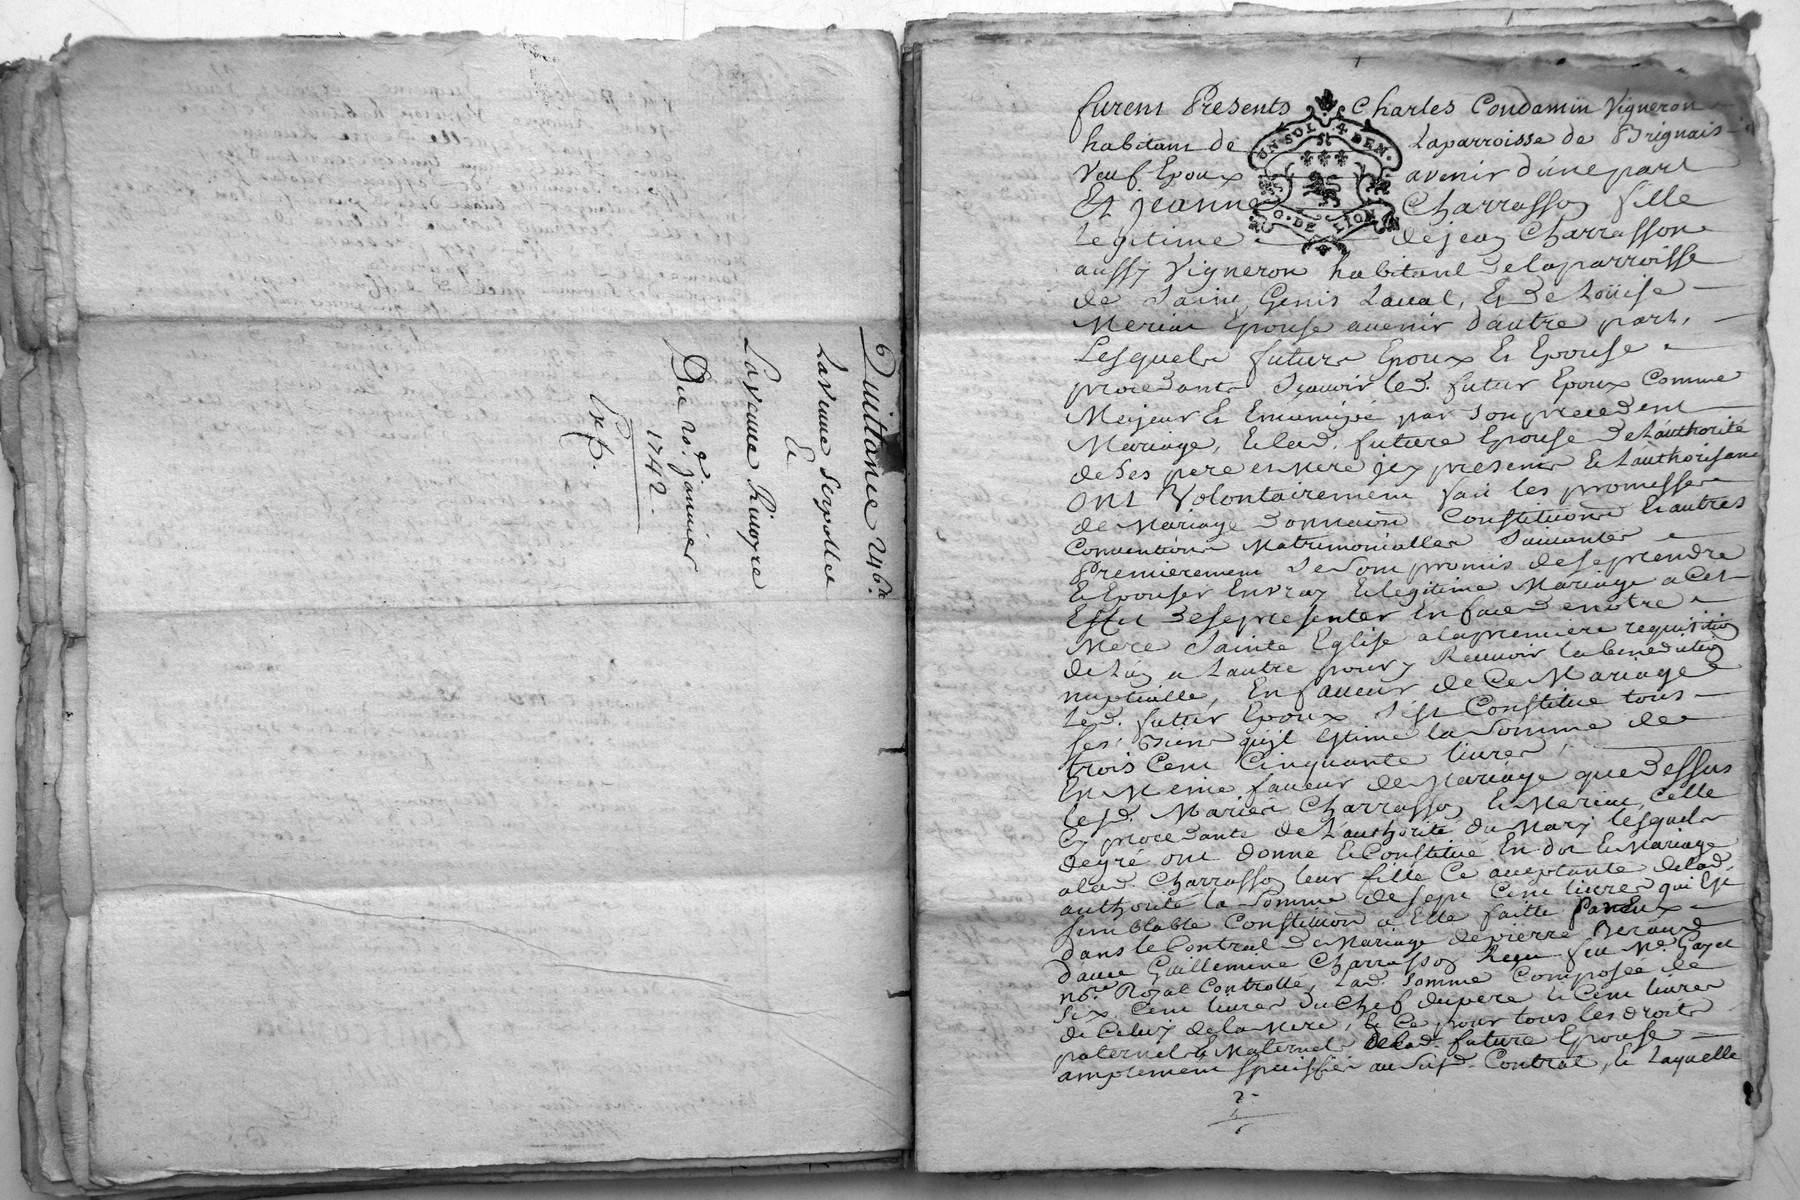 6
Quittance 246 lt.
La veuve
Et
La veuve Rivoyre
Du 20e. janvier
1742.
furent Presents Charles Condamin Vigneron
habitant de Laparroisse de Brignais
Veuf Epoux avenir d'une part
Et jeanne Charrasson fille
legitime de jean Charrasson
aussy Vigneron habitant de laparroisse
de Saint Genis Laval, Et de Loüise
Meriau Epouse avenir d'autre part,
Lesquels futurs Epoux Et Epouse
procedants Sçavoir led. futur Epoux Comme
Majeur Et Emancipé par son precedent
Mariage, Et lad. future Epouse de L'authorité
de ses pere et mere icy presents Et L'authorisant
ont Volontairement fait les promesses
de Mariage donnaõn Constitutions Et autres
Conventions Matrimonialles Suivantes
Premierement Se Sont promis de se prendre
Et Epouser En vray Et legitime Mariage a Cet
Effet de se presenter En face de notre
Mere Sainte Eglise a la premiere requisition
de L'un a L'autre pour y Recevoir la benediction
nuptialle, En faveur de Ce Mariage
Led. futur Epoux S'est Constitué tous
ses biens qu'il Estime la Somme de
trois Cent Cinquante livres,
En Meme faveur de Mariage que dessus
lesd. Mariés Charrasson Et Meriau, Celle
Cy procedante de L'authorité du Mary lesquels
de gré ont donné Et Constitué En dot Et Mariage
a lad. Charrasson leur fille Ce acceptante de lad.
authorité la Somme de sept Cent livres qui Est
semblable Constituõn a Elle faitte par Eux
dans le Contrat de Mariage de pierre Beraud
d'avec Guillemine Charrasson Reçu feu Me. Gayet
nore. Royal Controllé, Lad. Somme Composée de
Six Cent livres du Chef du pere Et Cent livres
de Celuy de la Mere, Et Ce pour tous les droits
paternels Et Maternels de lad. future Epouse
amplement Speciffiés au Susd. Contrat, Et Laquelle